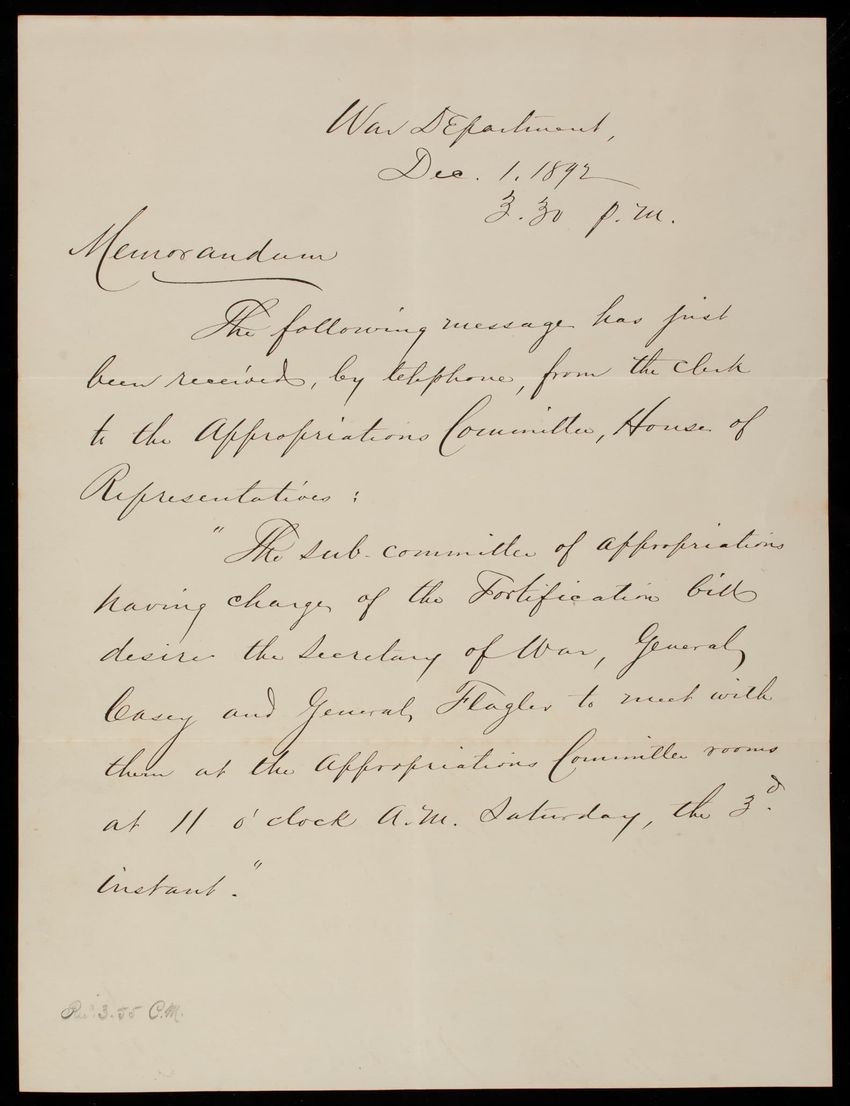 War Department,
Dec. 1. 1892
3.30 p.m.
Memorandum
The following message has just
been received, by telephone, from the clerk
to the Appropriations Committee, House of
Representatives:
"The sub-committee of appropriations
having charge of the Fortification bill
desire the Secretary of War, General
Casey and General Flagler to meet with
them at the Appropriations Committee rooms
at 11 o'clock A.M. Saturday, the 3d.
instant."
Rec'd. 3.55 P.M.